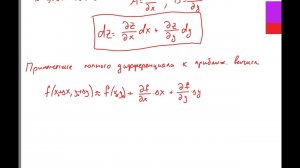 A = ∂z/∂x , B = ∂z/∂y
dz = ∂z/∂x dx + ∂z/∂y dy
Применение полного дифференциала к приближ. вычисл.
f(x+Δx, y+Δy) ≈ f(x,y) + ∂f/∂x Δx + ∂f/∂y Δy